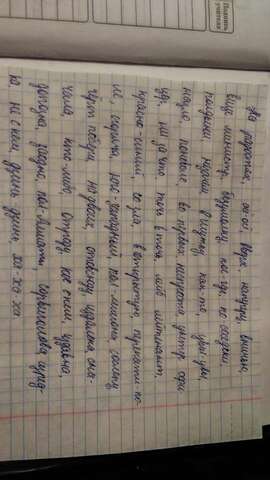 Подпись
учителя
На радостях, ой-ой, вверх, например, вничью,
вице министр, безумолку, кое-где, по-соседски,
полдыни, незачем, в шутку, как-то, увы-увы,
назло, поневоле, во первых, неспроста, унтер офи
цер, ни за что, точь в точь, лейб лейтенант,
красно-синий, со зла, в открытую, перекати-по-
ле, сгоряча, юго-западный, пол-лимона, сослепу,
чёрт побери, на двоих, отовсюду, издалека, сна-
чала, кто-либо, отроду, кое с кем, издавна,
допоздна, заодно, пол-Алматы, сорвиголова, изред-
ка, не с кем, дзинь-дзинь, ха-ха-ха.